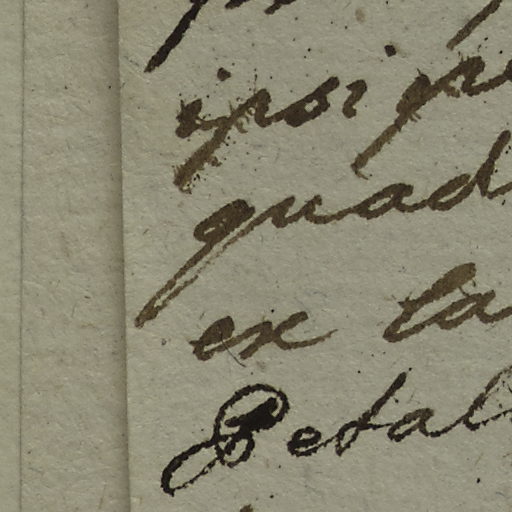 ipsi
quad
ex la
Petal